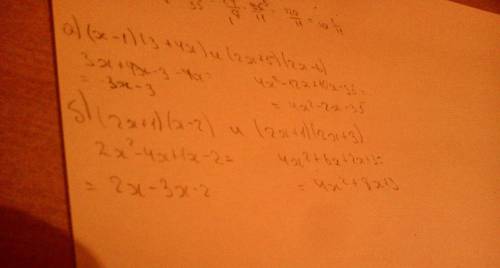 а) (x-1)(3+4x) и (2x+5)(2x-
3x+4x-3-4x
4x²-12x+10x-35
= 3x-3
= 4x²-2x-35
б) (2x+1)(x-2) и (2x+1)(2x+3)
2x²-4x+1x-2=
4x²+6x+2x+3=
= 2x-3x-2
= 4x²+8x+3